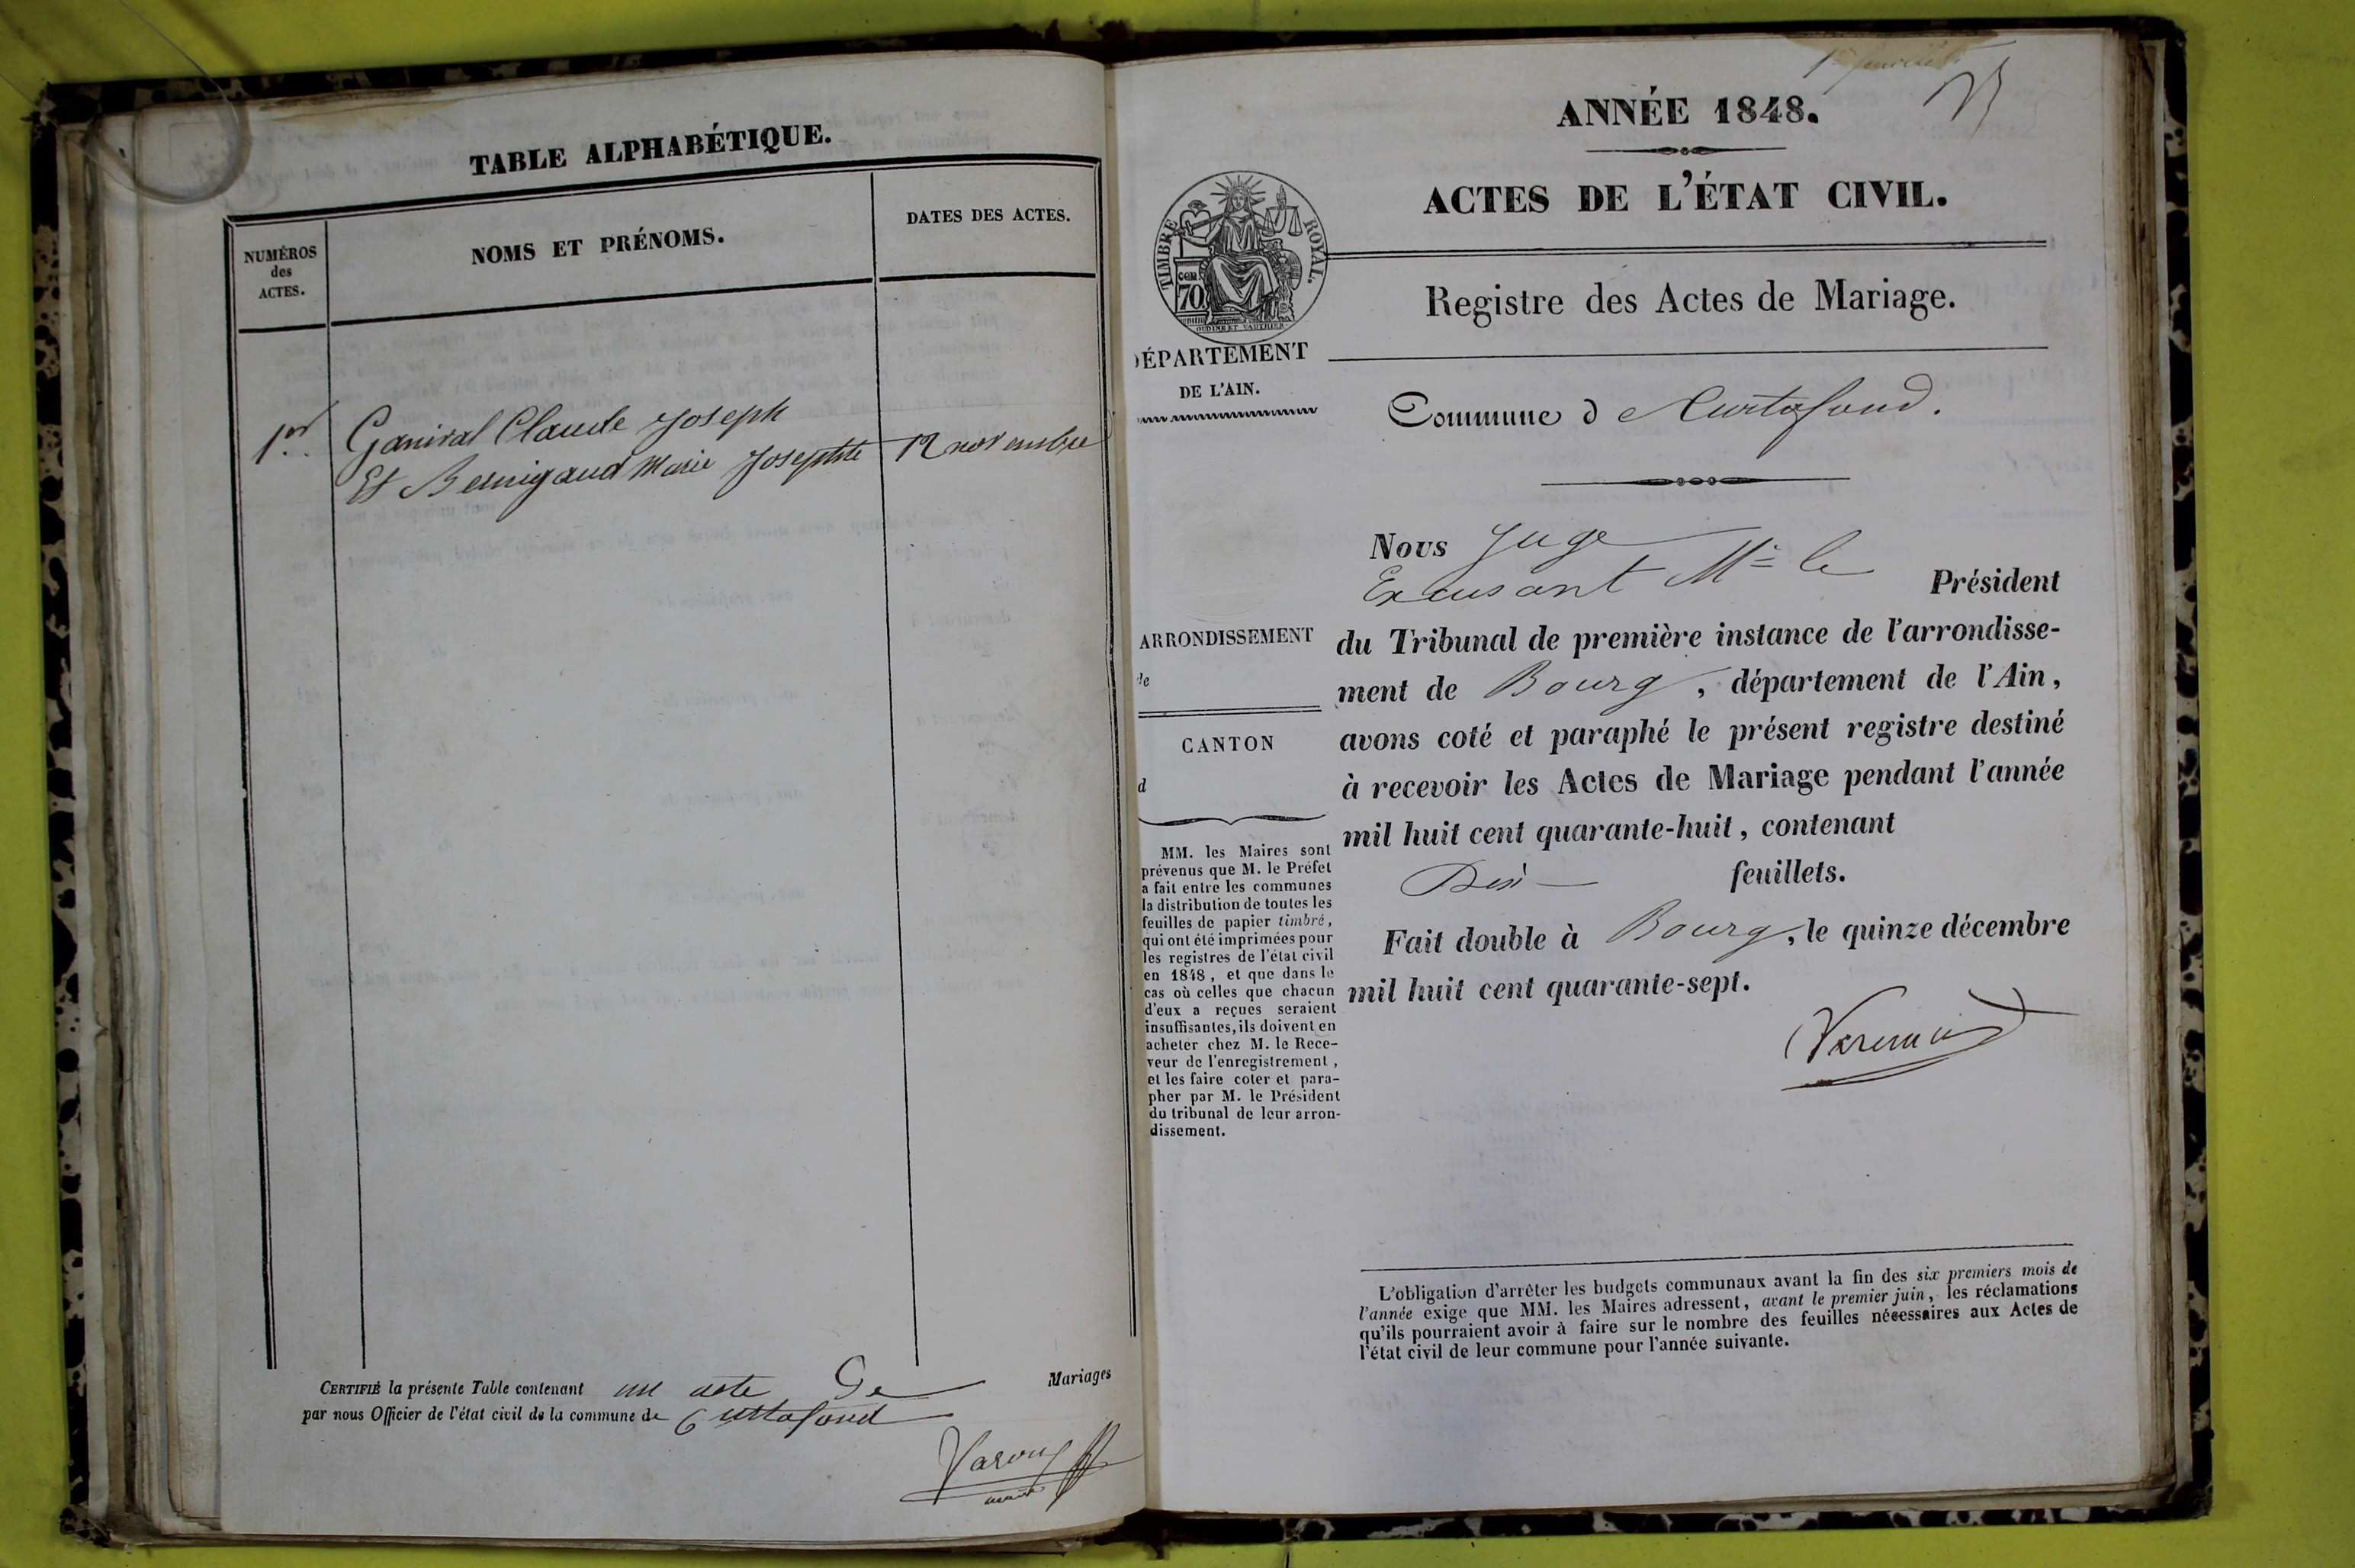 TABLE ALPHABÉTIQUE.
NUMÉROS
des
ACTES.
NOMS ET PRÉNOMS.
DATES DES ACTES.
1er
Ganival Claude Joseph
Et Bernigaud Marie Josephte
12 novembre
CERTIFIÉ la présente Table contenant un acte De Mariages
par nous Officier de l'état civil de la commune de Curtafond
maire
1er feuillet
ANNÉE 1848.
ACTES DE L'ÉTAT CIVIL.
TIMBRE ROYAL.
CEN.
70
OUDINE ET VAUTHIER
Registre des Actes de Mariage.
DÉPARTEMENT
DE L'AIN.
Commune d Curtafond.
Nous Juge
Excusant Mr le Président
du Tribunal de première instance de l'arrondisse-
ment de Bourg, département de l'Ain,
avons coté et paraphé le présent registre destiné
à recevoir les Actes de Mariage pendant l'année
mil huit cent quarante-huit, contenant
feuillets.
Fait double à Bourg, le quinze décembre
mil huit cent quarante-sept.
ARRONDISSEMENT
de
CANTON
d
MM. les Maires sont
prévenus que M. le Préfet
a fait entre les communes
la distribution de toutes les
feuilles de papier timbré,
qui ont été imprimées pour
les registres de l'état civil
en 1848, et que dans le
cas où celles que chacun
d'eux a reçues seraient
insuffisantes, ils doivent en
acheter chez M. le Rece-
veur de l'enregistrement,
et les faire coter et para-
pher par M. le Président
du tribunal de leur arron-
dissement.
L'obligation d'arrêter les budgets communaux avant la fin des six premiers mois de
l'année exige que MM. les Maires adressent, avant le premier juin, les réclamations
qu'ils pourraient avoir à faire sur le nombre des feuilles nécessaires aux Actes de
l'état civil de leur commune pour l'année suivante.